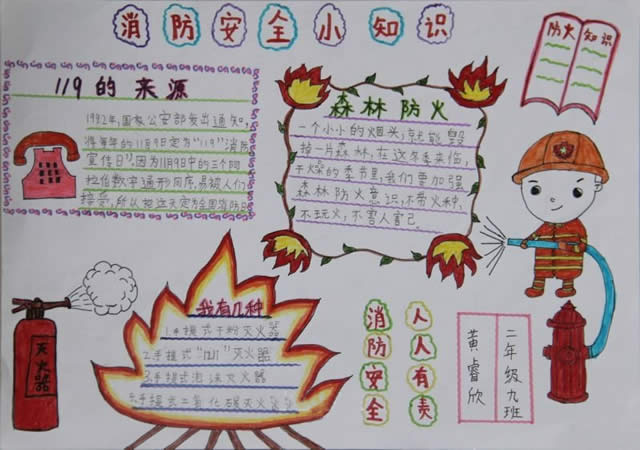 消防安全小知识
防火 知识
119的来源
1992年,国家公安部发出通知,
将每年的11月9日定为"119"消防
宣传日",因为11月9日中的三个阿
拉伯数字
易被人们
接受,所以把这天定为全国消防日
森林防火
一个小小的烟头,就能毁
掉一片森林,在这冬季来临,
干燥的季节里,我们要加强
森林防火意识,不带火种,
不玩火,不害人害己.
我有几种
1.手提式干粉灭火器
2.手提式"1211"灭火器
3.手提式泡沫灭火器
4.手提式二氧化碳灭火器
灭火器
消防安全
人人有责
二年级九班
黄睿欣